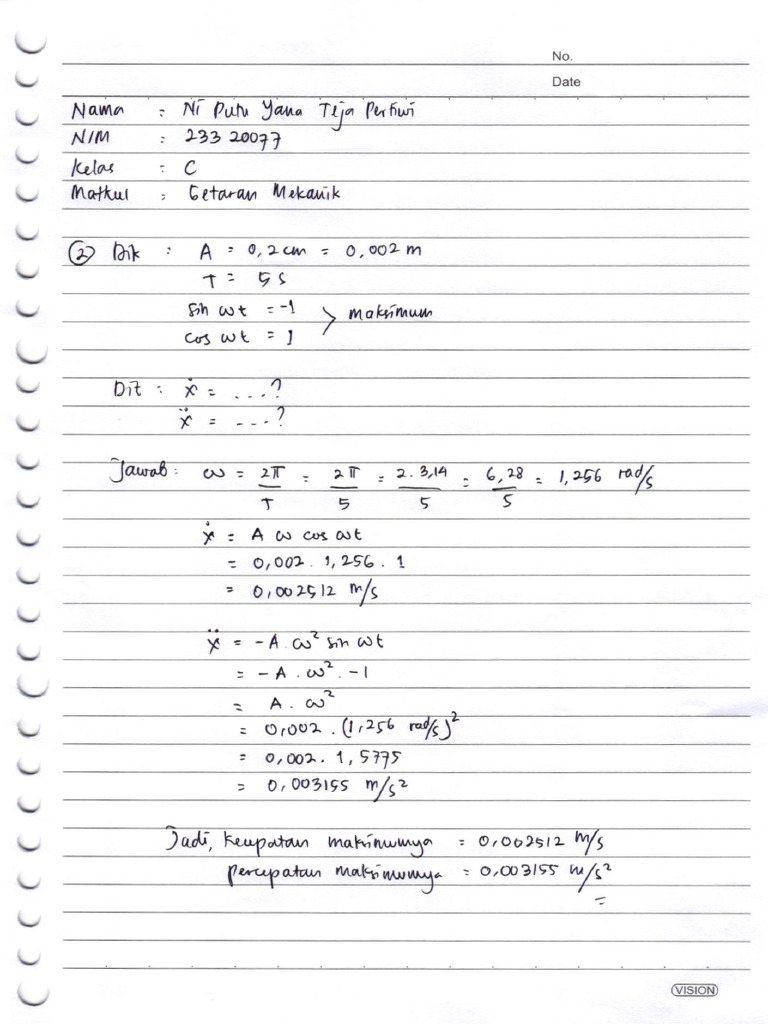 No.
Date
Nama : Ni Putu Yana Teja Pertiwi
NIM : 233 20077
Kelas : C
Matkul : Getaran Mekanik
② Dik : A = 0,2 cm = 0,002 m
T = 5 s
sin ωt = -1 > maksimum
cos ωt = 1
Dit : ẋ = ...?
ẍ = ...?
Jawab : ω = 2π/T = 2π/5 = 2.3,14/5 = 6,28/5 = 1,256 rad/s
ẋ = A ω cos ωt
= 0,002 . 1,256 . 1
= 0,002512 m/s
ẍ = -A . ω² sin ωt
= -A . ω² . -1
= A . ω²
= 0,002 . (1,256 rad/s)²
= 0,002 . 1,5775
= 0,003155 m/s²
Jadi, kecepatan maksimumnya = 0,002512 m/s
percepatan maksimumnya = 0,003155 m/s²
VISION